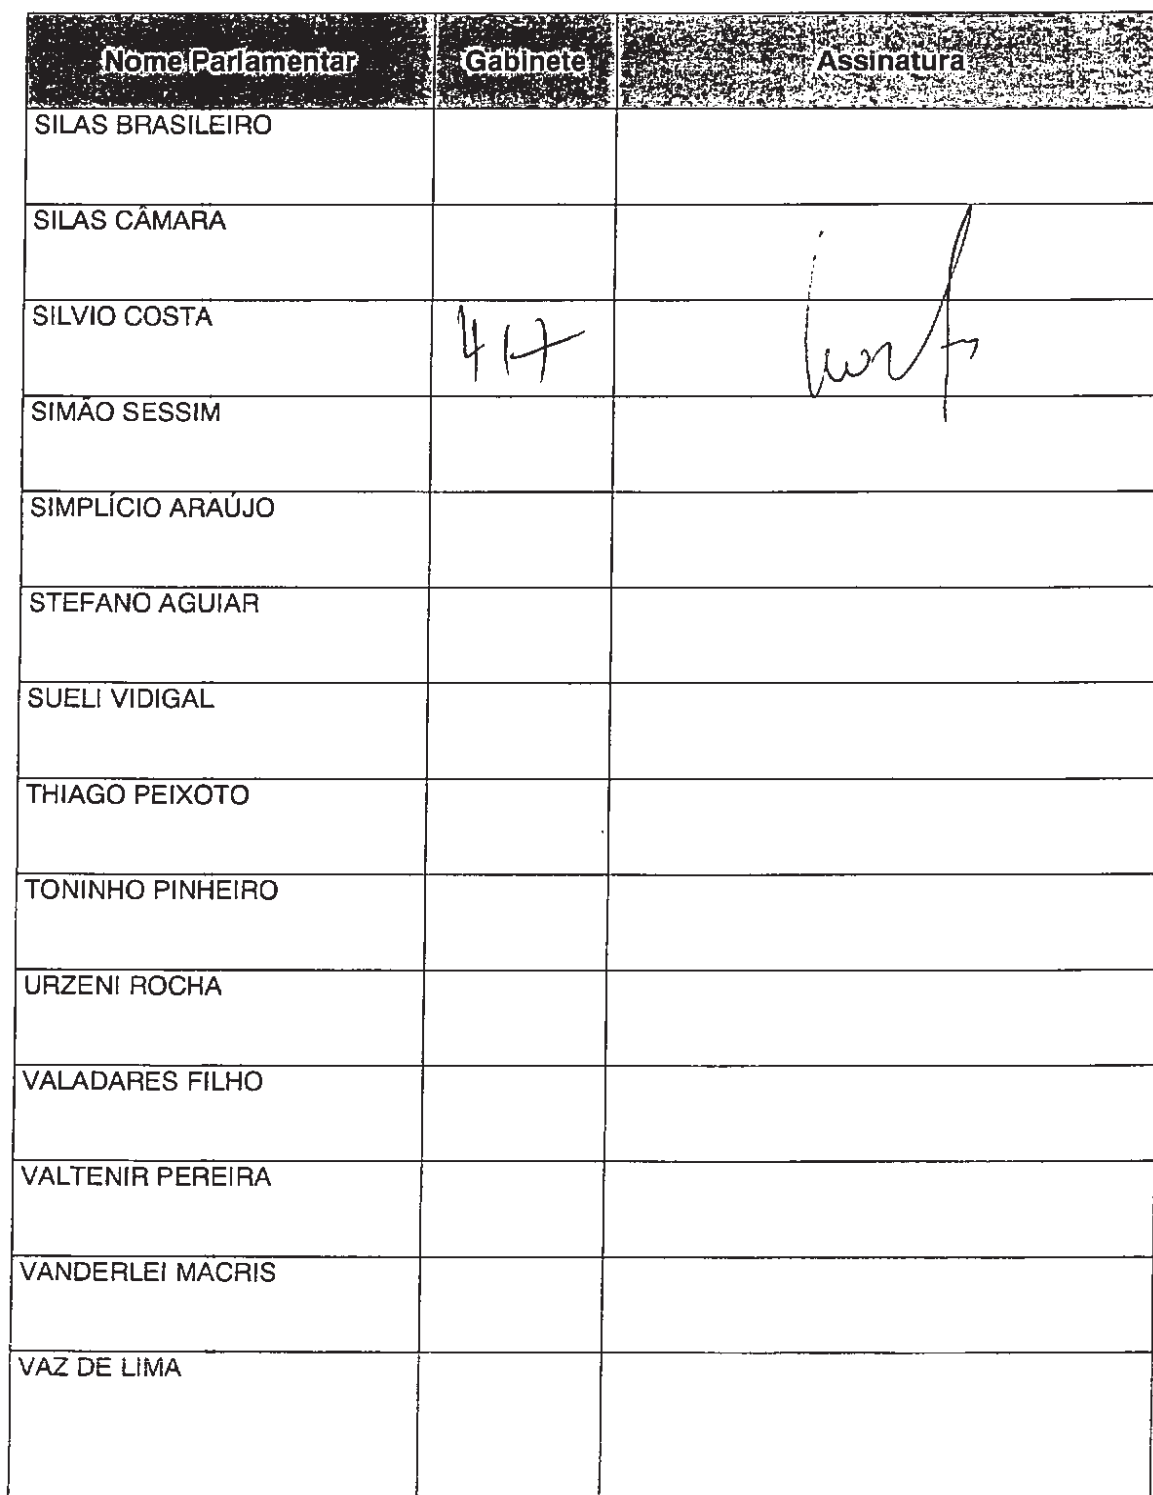 Nome Parlamentar Gabinete Assinatura
SILAS BRASILEIRO
SILAS CÂMARA
SILVIO COSTA 417
SIMÃO SESSIM
SIMPLÍCIO ARAÚJO
STEFANO AGUIAR
SUELI VIDIGAL
THIAGO PEIXOTO
TONINHO PINHEIRO
URZENI ROCHA
VALADARES FILHO
VALTENIR PEREIRA
VANDERLEI MACRIS
VAZ DE LIMA